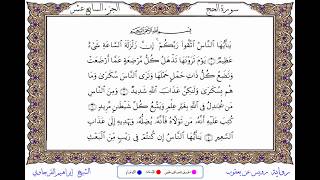 سورة الحج
الجزء السابع عشر
بِسْمِ ٱللَّهِ ٱلرَّحْمَٰنِ ٱلرَّحِيمِ
يَٰٓأَيُّهَا ٱلنَّاسُ ٱتَّقُوا۟ رَبَّكُمْ إِنَّ زَلْزَلَةَ ٱلسَّاعَةِ شَىْءٌ
عَظِيمٌ يَوْمَ تَرَوْنَهَا تَذْهَلُ كُلُّ مُرْضِعَةٍ عَمَّآ أَرْضَعَتْ
وَتَضَعُ كُلُّ ذَاتِ حَمْلٍ حَمْلَهَا وَتَرَى ٱلنَّاسَ سُكَٰرَىٰ وَمَا
هُم بِسُكَٰرَىٰ وَلَٰكِنَّ عَذَابَ ٱللَّهِ شَدِيدٌ وَمِنَ ٱلنَّاسِ
مَن يُجَٰدِلُ فِى ٱللَّهِ بِغَيْرِ عِلْمٍ وَيَتَّبِعُ كُلَّ شَيْطَٰنٍ مَّرِيدٍ
كُتِبَ عَلَيْهِ أَنَّهُۥ مَن تَوَلَّاهُ فَأَنَّهُۥ يُضِلُّهُۥ وَيَهْدِيهِ إِلَىٰ عَذَابِ
ٱلسَّعِيرِ يَٰٓأَيُّهَا ٱلنَّاسُ إِن كُنتُمْ فِى رَيْبٍ مِّنَ ٱلْبَعْثِ
رواية رويس عن يعقوب
الشيخ إبراهيم